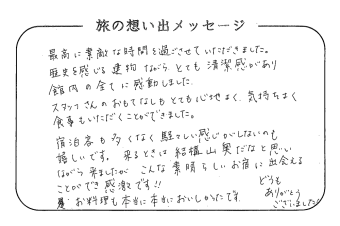 旅の想い出メッセージ
最高に素敵な時間を過ごさせていただきました。
歴史を感じる建物ながら、とても清潔感があり
館内の全てに感動しました。
スタッフさんのおもてなしもとても心地よく、気持ちよく
食事もいただくことができました。
宿泊客も多くなく騒々しい感じがしないのも
嬉しいです。来るときは結構山奥だなと思い
ながら来ましたが、こんな素晴らしいお宿に出会える
ことができ感激です!!
お料理も本当に本当においしかったです。
どうも
ありがとう
ございました!